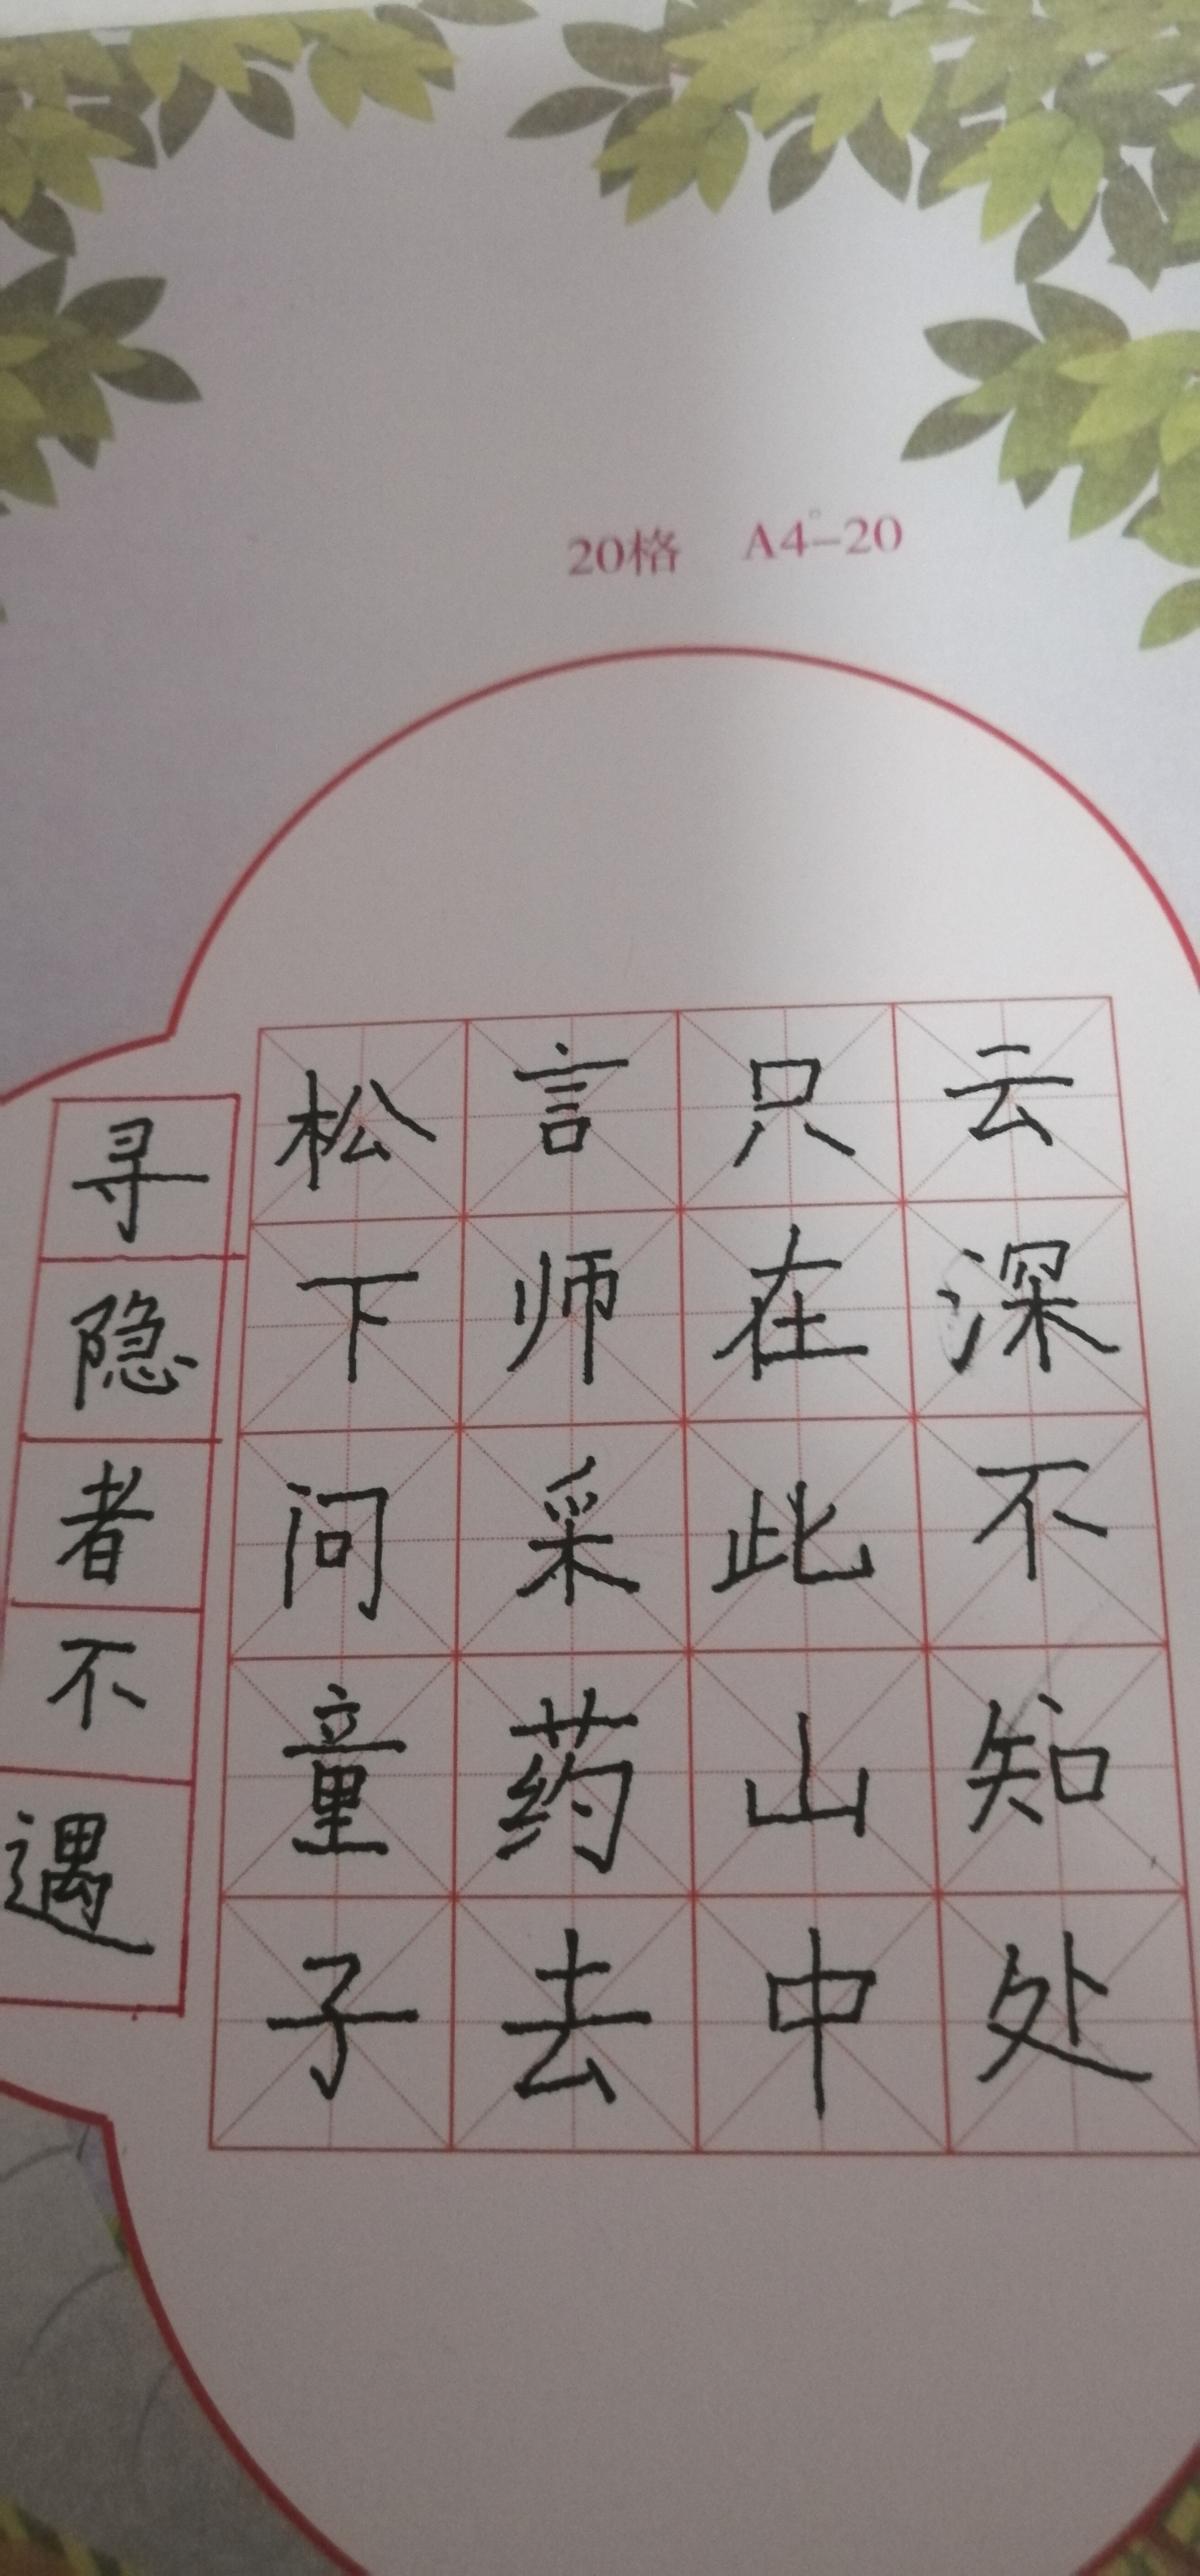 20格 A4-20
寻隐者不遇
松下问童子
言师采药去
只在此山中
云深不知处